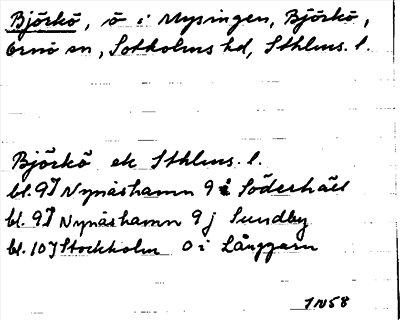 Björkö, ö i Mysingen, Björkö,
Ornö sn, Sotholms hd, Sthlms. l.
Björkö ek Sthlms. l.
bl. 9J Nynäshamn 9 i Söderhäll
bl. 9J Nynäshamn 9 j Sundby
bl. 10J Stockholm 0 i Långgarn
JN58